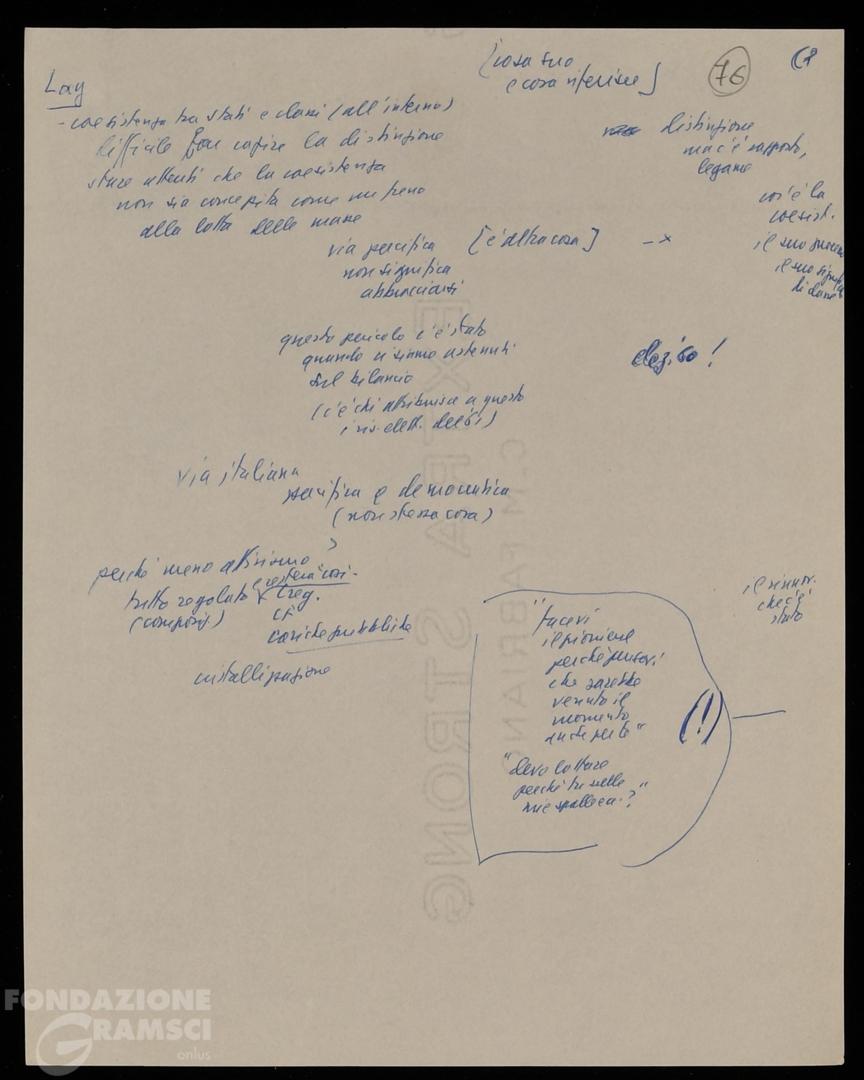 [cosa sua
e cosa riferisce]
76
Lay
- coesistenza tra stati e classi (all'interno)
difficile far capire la distinzione
stare attenti che la coesistenza
non sia concepita come un freno
alla lotta delle masse
distinzione
ma c'è rapporto,
legame
cos'è la
coesist.
il suo
il suo signif.
di classe
via pacifica [è altra cosa] - x
non significa
abbracciarsi
questo pericolo c'è stato
quando ci siamo astenuti
sul bilancio
(c'è chi attribuisce a questo
i ris. elett. del '61)
elogiso!
via italiana
pacifica e democratica
(non stessa cosa)
perché meno attivismo?
tutto regolato
(compagni)
C reg.
CF
cariche pubbliche
cristallizzazione
il rinnov.
che c'è
stato
"facevi
il pioniere
perché pensavi
che sarebbe
venuto il
momento
anche per te"
(!)
"devo lottare
perché tu sulle
mie spalle ?"
EXTRA STRONG
C.M. FABRIANO
FONDAZIONE
GRAMSCI
onlus